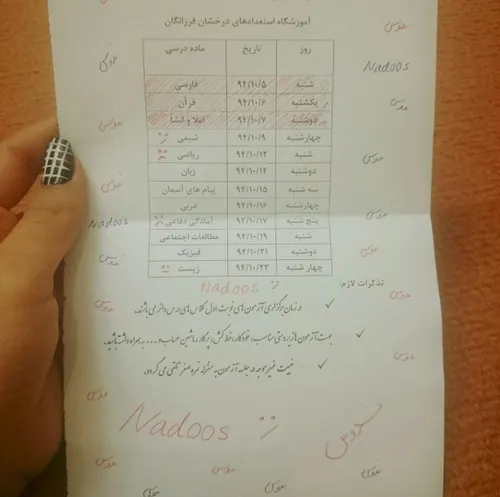 آموزشگاه استعدادهای درخشان فرزانگان
روز تاریخ ماده درسی
شنبه ۹۴/۱۰/۵ فارسی
یکشنبه ۹۴/۱۰/۶ قرآن
دوشنبه ۹۴/۱۰/۷ املا و انشا
چهارشنبه ۹۴/۱۰/۹ شیمی
شنبه ۹۴/۱۰/۱۲ ریاضی
دوشنبه ۹۴/۱۰/۱۴ زبان
سه شنبه ۹۴/۱۰/۱۵ پیام های آسمان
چهارشنبه ۹۴/۱۰/۱۶ عربی
پنج شنبه ۹۴/۱۰/۱۷ آمادگی دفاعی
شنبه ۹۴/۱۰/۱۹ مطالعات اجتماعی
دوشنبه ۹۴/۱۰/۲۱ فیزیک
چهار شنبه ۹۴/۱۰/۲۳ زیست
Nadoos
Nadoos
تذکرات لازم:
Nadoos
در زمان برگزاری آزمون های نوبت اول کلاس های درس دایر می باشند.
جهت آزمون ها زیردستی مناسب، خودکار، خط کش، پرگار، ماشین حساب و... به همراه داشته باشید.
غیبت غیر موجه در جلسه آزمون به منزله نمره صفر تلقی می گردد.
Nadoos